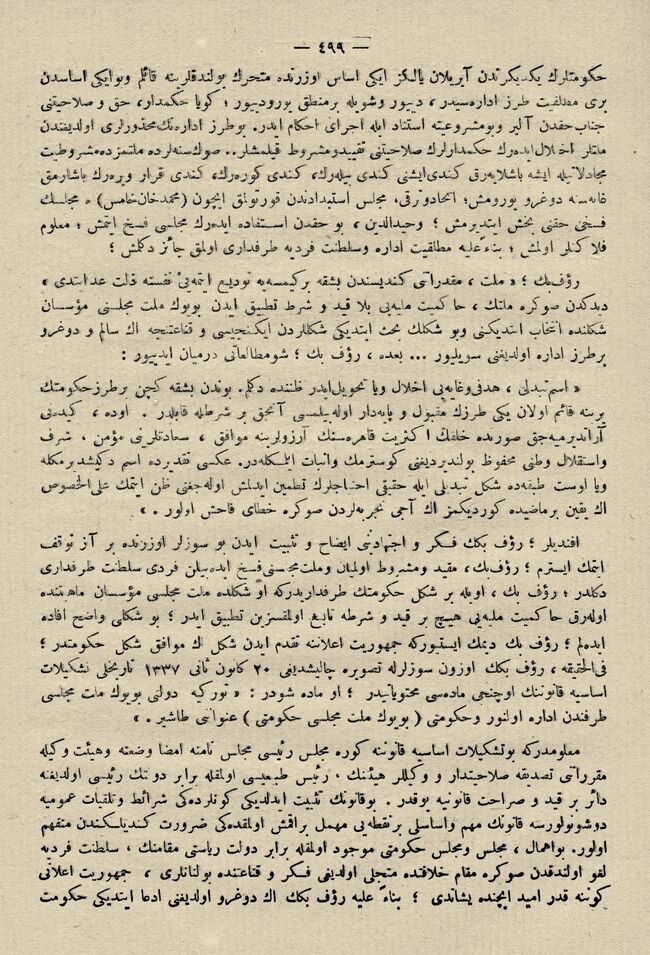 — ٤٩٩ —
حكومتلرك يكديكرندن آيريلان يالكز ايكى اساس اوزرنده متحرك بولندقلرينه قائلم وبوايكى اساسدن
برى مطلقيت طرز اداره سيدر ، دييور وشويله برمنطق يوروديور ؛ كويا حكمدار، حق و صلاحيتنى
جناب حقدن آلير وبومشروعيته استناد ايله اجراى احكام ايدر. بوطرز اداره نك محذورلرى اولديغندن
ملتلر اخلال ايده رك حكمدارلرك صلاحيتنى تقييد ومشروط قيلمشلر.. صوك سنه لرده ملتمزده مشروطيت
مجادلاتيله ايشه باشلايه رق كندى ايشنى كندى بيله رك، كندى كوره رك، كندى قرار ويره رك باشارمق
غايه سنه دوغرو يورومش؛ اتحادورقى، مجلس استبداددن قورتولمق ايچون (محمدخان خامس) ه مجلسك
فسخى حقنى بخش ايتديرمش ؛ وحيدالدين ، بو حقدن استفاده ايده رك مجلسى فسخ ايتمش ؛ معلوم
فلاكتلر اولمش ؛ بناءً عليه مطلقيت اداره وسلطنت فرديه طرفدارى اولمق جائز دكلمش ؛
رؤف بك ؛ « ملت ، مقدراتى كنديسندن بشقه بركيمسه يه توديع ايتمه يى نفسنه ذلت عد ايتدى »
ديدكدن صوكره ملتك ، حاكميت مليه يى بلا قيد و شرط تطبيق ايدن بويوك ملت مجلسنى مؤسسان
شكلنده انتخاب ايتديكنى وبو شكلك بحث ايتديكى شكللردن ايكنجيسى و قناعتنجه اك سالم و دوغرو
برطرز اداره اولديغنى سويليور ... بعده ، رؤف بك ؛ شومطالعاتى درميان ايدييور :
« اسم تبدلى ، هدفى وغايه يى اخلال ويا تحويل ايدر ظننده دكلم. بوندن بشقه كچن برطرز حكومتك
يرينه قائم اولان يكى طرزك مقبول و پايه دار اوله بيلمسى آنجق بر شرطله قابلدر . اوده ، كيده نى
آراتديرميه جق صورتده خلقك اكثريت قاهره سنك آرزولرينه موافق ، سعادتلرينى مؤمن ، شرف
واستقلال وطنى محفوظ بولنديرديغنى كوسترمك واثبات ايتمكله در. عكسى تقديرده اسم دكيشديرمكله
ويا اوست طبقه ده شكل تبديلى ايله حقيقى احتياجلرك تطمين ايدلمش اوله جغنى ظن ايتمك على الخصوص
اك يقين برماضيده كورديكمز اك آجى تجربه لردن صوكره خطاى فاحش اولور . »
افنديلر ؛ رؤف بكك فكر و اجتهادنى ايضاح و تثبيت ايدن بو سوزلر اوزرنده بر آز توقف
ايتمك ايسترم ؛ رؤف بك، مقيد ومشروط اولميان وملت مجلسنى فسخ ايده بيلن فردى سلطنت طرفدارى
دكلدر ؛ رؤف بك ، اويله بر شكل حكومتك طرفداريدركه او شكلده ملت مجلسى مؤسسان ماهيتنده
اوله رق حاكميت مليه يى هيچ بر قيد و شرطه تابع اولمقسزين تطبيق ايدر ؛ بو شكلى واضح افاده
ايده لم ؛ رؤف بك ديمك ايستيوركه جمهوريت اعلاننه تقدم ايدن شكل اك موافق شكل حكومتدر ؛
فى الحقيقه ، رؤف بكك اوزون سوزلرله تصويره چاليشديغى ٢٠ كانون ثانى ١٣٣٧ تاريخلى تشكيلات
اساسيه قانوننك اوچنجى ماده سى محتوياتيدر ؛ او ماده شودر : « توركيه دولتى بويوك ملت مجلسى
طرفندن اداره اولنور وحكومتى ( بويوك ملت مجلسى حكومتى ) عنواننى طاشير . »
معلومدركه بوتشكيلات اساسيه قانوننه كوره مجلس رئيسى مجلس نامنه امضا وضعنه وهيئت وكيله
مقرراتى تصديقه صلاحيتدار و وكيللر هيئتنك ، رئيس طبيعيسى اولمقله برابر دولتك رئيسى اولديغنه
دائر بر قيد و صراحت قانونيه يوقدر . بوقانونك تثبيت ايدلديكى كونلرده كى شرائط وتلقيات عموميه
دوشونولورسه قانونك مهم واساسلى برنقطه يى مهمل براقمش اولمقده كى ضرورت كنديلكندن متفهم
اولور. بواهمال ، مجلس ومجلس حكومتى موجود اولمقله برابر دولت رياستى مقامنك ، سلطنت فرديه
لغو اولندقدن صوكره مقام خلافتده متجلى اولديغى فكر و قناعتنده بولنانلرى ، جمهوريت اعلانى
كوننه قدر اميد ايچنده يشاتدى ؛ بناءً عليه رؤف بكك اك دوغرو اولديغنى ادعا ايتديكى حكومت